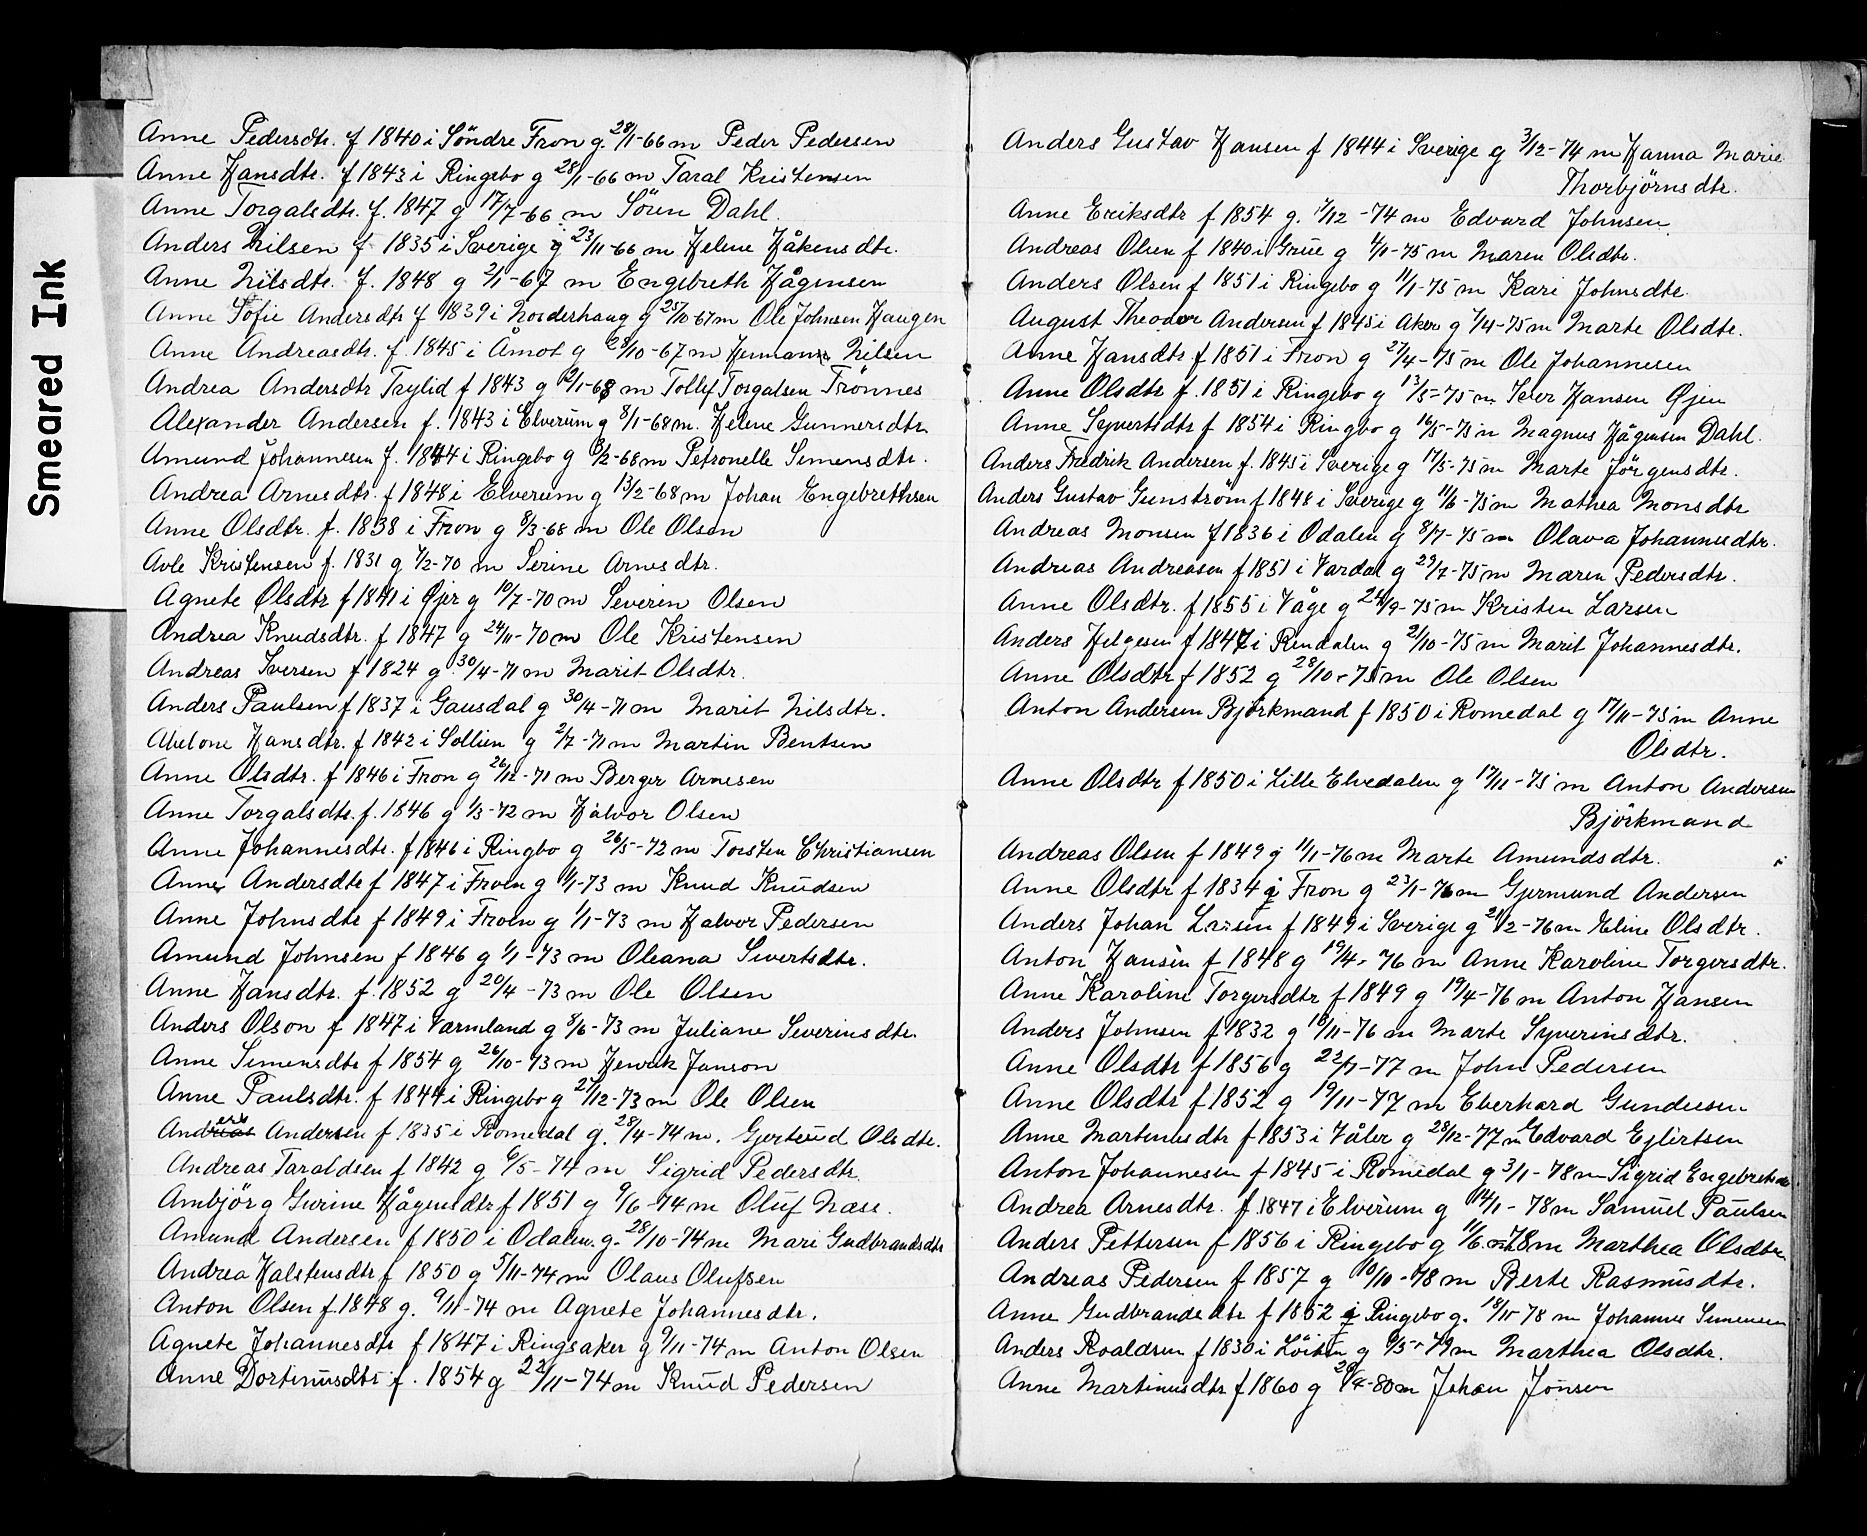 Smeared Ink
Anne Pedersdtr. f 1840 i Söndre Fron g. 28/11-66 m Peder Pedersen
Anne Hansdtr. f 1843 i Ringebo g 28/11-66 m Taral Kristensen
Anne Torgalsdtr. f. 1847 g 17/7-66 m Sören Dahl.
Anders Nilsen f 1835 i Sverige g 23/11-66 m Helene Håkensdtr.
Anne Nilsdtr. f. 1848 g 2/1-67 m Engebreth Hågensen
Anne Sofie Andersdtr f 1839 i Norderhaug g 25/10-67 m Ole Johnsen Haugen
Anne Andreasdtr. f. 1845 i Åmot g 28/10-67 m Hermann Nilsen
Andrea Andersdtr Trylid f 1843 g 12/1-68 m Tollef Torgalsen Frönnes
Alexander Andersen f. 1843 i Elverum g 8/11-68 m. Helene Gunnersdtr
Amund Johannesen f. 1844 i Ringebo g 8/2-68 m Petronelle Simensdtr.
Andrea Arnesdtr. f 1848 i Elverum g 13/2-68 m Johan Engebrethsen
Anne Olsdtr. f. 1838 i Fron g 8/3-68 m Ole Olsen
Avle Kristensen f. 1831 g 4/2-70 m Serine Arnesdtr.
Agnete Olsdtr f 1841 i Øjer g 10/7-70 m Severin Olsen
Andrea Knudsdtr. f 1847 g 24/11-70 m Ole Kristensen
Andreas Iversen f 1824 g. 30/4-71 m Marit Olsdtr.
Anders Paulsen f 1837 i Gausdal g 30/4-71 m Marit Nilsdtr.
Abelone Hansdtr. f 1842 i Sollien g 2/7-71 m Martin Bentsen
Anne Olsdtr. f 1846 i Fron g 26/12-71 m Berger Arnesen
Anne Torgalsdtr. f. 1846 g 1/3-72 m Halvor Olsen
Anne Johannesdtr. f 1846 i Ringbo g 26/5-72 m Torsten Christiansen
Anne Andersdtr f 1847 i Froln g 1/1-73 m Knud Knudsen
Anne Johnsdtr f 1849 i Froln g 1/1-73 m Halvor Pedersen
Amund Johnsen f 1846 g 1/1-73 m Oleana Sivertsdtr.
Anne Hansdtr. f. 1852 g 20/4-73 m Ole Olsen
Anders Olson f 1847 i Værmland g 8/6-73 m Juliane Severinsdtr.
Anne Simensdtr f 1854 g 26/10-73 m Henrik Janson
Anne Paulsdtr. f 1844 i Ringebo g 27/12-73 m Ole Olsen
Anders Andersen f 1835 i Romedal g. 28/4-74 m. Gjertrud Olsdtr.
Andreas Taraldsen f 1842 g 6/5-74 m Sigrid Pedersdtr.
Ambjörg Gurine Hågensdtr f 1851 g 9/6-74 m Oluf Næss.
Amund Andersen f 1850 i Odalen. g. 28/10-74 m Mari Gudbrandsdtr
Andrea Halstensdtr f 1850 g 5/11-74 m Olaus Olufsen
Anton Olsen f. 1848 g. 9/11-74 m Agnete Johannesdtr.
Agnete Johannesdtr f 1847 i Ringsaker g 9/11-74 m Anton Olsen
Anne Dortinusdtr f. 1854 g 22/11-74 m Knud Pedersen
Anders Gustav Hansen f 1844 i Sverige g 3/12-74 m Hanna Marie
Thorbjörnsdtr.
Anne Eriksdtr f 1854 g. 7/12-74 m Edvard Johnsen
Andreas Olsen f 1840 i Grue g 4/1-75 m Maren Olsdtr.
Anders Olsen f 1851 i Ringebo g 11/1-75 m Kari Johnsdtr.
August Theodor Andersen f 1845 i Aker g 7/4-75 m Marte Olsdtr.
Anne Hansdtr f 1851 i Fron g 27/4-75 m Ole Johannesen
Anne Olsdtr f. 1851 i Ringebo g 13/5-75 m. Iver Hansen Øjen
Anne Syvertsdtr f 1854 i Ringbo g 16/5-75 m Magnus Hågensen Dahl.
Anders Fredrik Andersen f. 1845 i Sverige g 17/5-75 m Marte Jörgensdtr.
Anders Gustav Gunström f 1848 i Sverige g 11/6-75 m Mathea Monsdtr
Andreas Monsen f 1836 i Odalen g 8/7-75 m Olava Johannesdtr.
Andreas Andreasen f 1851 i Vardal g 29/7-75 m Maren Pedersdtr.
Anne Olsdtr. f 1855 i Våge g 24/9-75 m Kristen Larsen
Anders Helgesen f 1847 i Rendalen g 21/10-75 m Marit Johannesdtr.
Anne Olsdtr f 1852 g 28/10-75 m Ole Olsen
Anton Andersen Björkmand f 1850 i Romedal g 17/11-75 m Anne
Olsdtr.
Anne Olsdtr f 1850 i Lille Elvedalen g 17/11-75 m Anton Andersen
Björkmand
Andreas Olsen f 1849 g 11/1-76 m Marte Amundsdtr.
Anne Olsdtr f 1834 i Fron g 23/1-76 m Gjermund Andersen
Anders Johan Larsen f 1849 i Sverige g 21/2-76 m Eline Olsdtr.
Anton Hansen f 1848 g 19/4-76 m Anne Karoline Torgersdtr.
Anne Karoline Torgersdtr f 1849 g 19/4-76 m Anton Hansen
Anders Johnsen f 1832 g 10/11-76 m Marte Syverinsdtr.
Anne Olsdtr f 1856 g 22/7-77 m John Pedersen
Anne Olsdtr f 1852 g 19/11-77 m Eberhard Gundersen
Anne Martinusdtr f 1853 i Våler g 28/12-77 m Edvard Ejlertsen
Anton Johannesen f 1845 i Romedal g 3/11-78 m Sigrid Engebretsdtr
Andrea Arnesdtr. f. 1847 i Elverum g 14/1-78 m Samuel Paulsen
Anders Pettersen f 1856 i Ringebo g 11/6-78 m Marthea Olsdtr
Andreas Pedersen f 1857 g 10/10-78 m Berte Rasmusdtr.
Anne Gudbrandsdtr f 1852 i Ringebo g. 18/11 78 m Johannes Simensen
Anders Roaldsen f 1830 i Löiten g 9/5-79 m Marthea Olsdtr.
Anne Martinusdtr f 1860 g 20/4-80 m Johan Jonsen